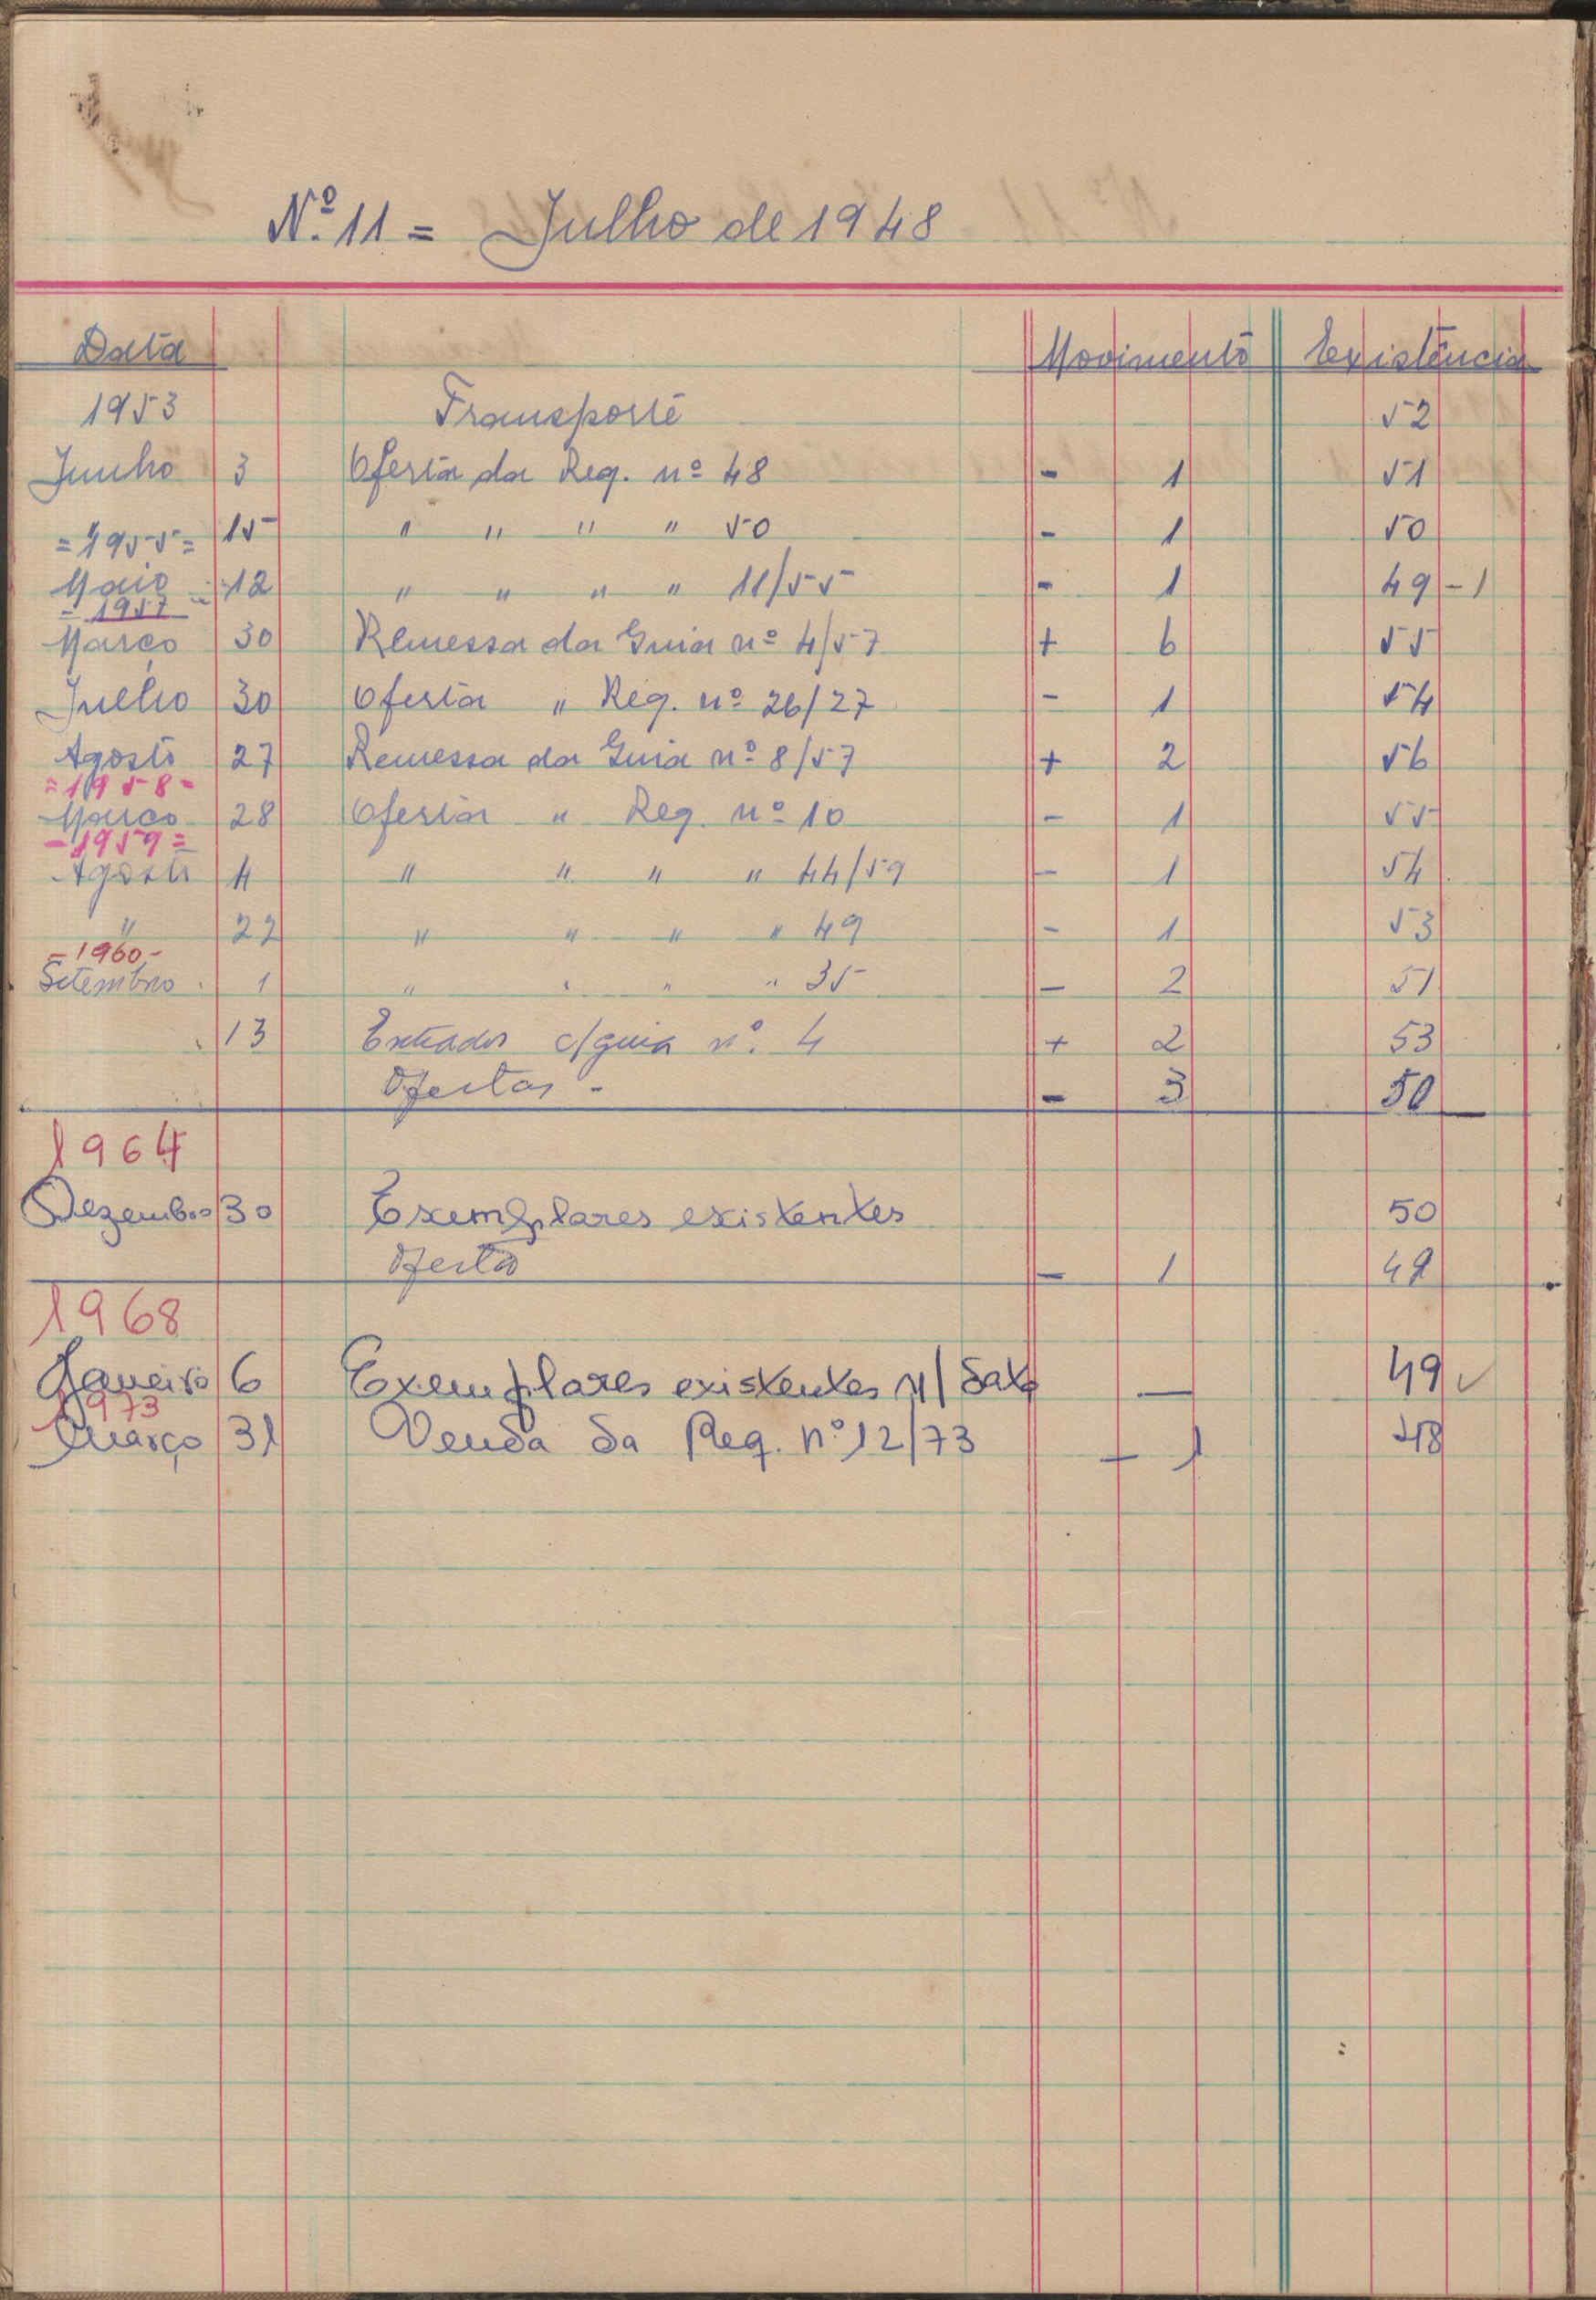 Nº 11 = Julho de 1948
Data Movimento Existência
1953 Transporte 52
Junho 3 Oferta da Req. nº 48 - 1 51
" 15 " " " " 50 - 1 50
=1955=
Maio 12 " " " " 11/55 - 1 49 - 1
= 1957
Março 30 Remessa da Guia nº 4/57 + 6 55
Julho 30 Oferta " Req. nº 26/27 - 1 54
Agosto 27 Remessa da Guia nº 8/57 + 2 56
=1958=
Março 28 Oferta " Req. nº 10 - 1 55
-1959=
Agosto 4 " " " " 44/59 - 1 54
" 22 " " " " 49 - 1 53
-1960-
Setembro 1 " " " " 35 - 2 51
13 c/guia nº. 4 + 2 53
Ofertas - - 3 50
1964
Dezembro 30 Exemplares existentes 50
Oferta - 1 49
1968
Janeiro 6 Exemplares existentes n/ data — 49 ✓
1973
Março 31 Venda da Req. nº 12/73 - 1 48